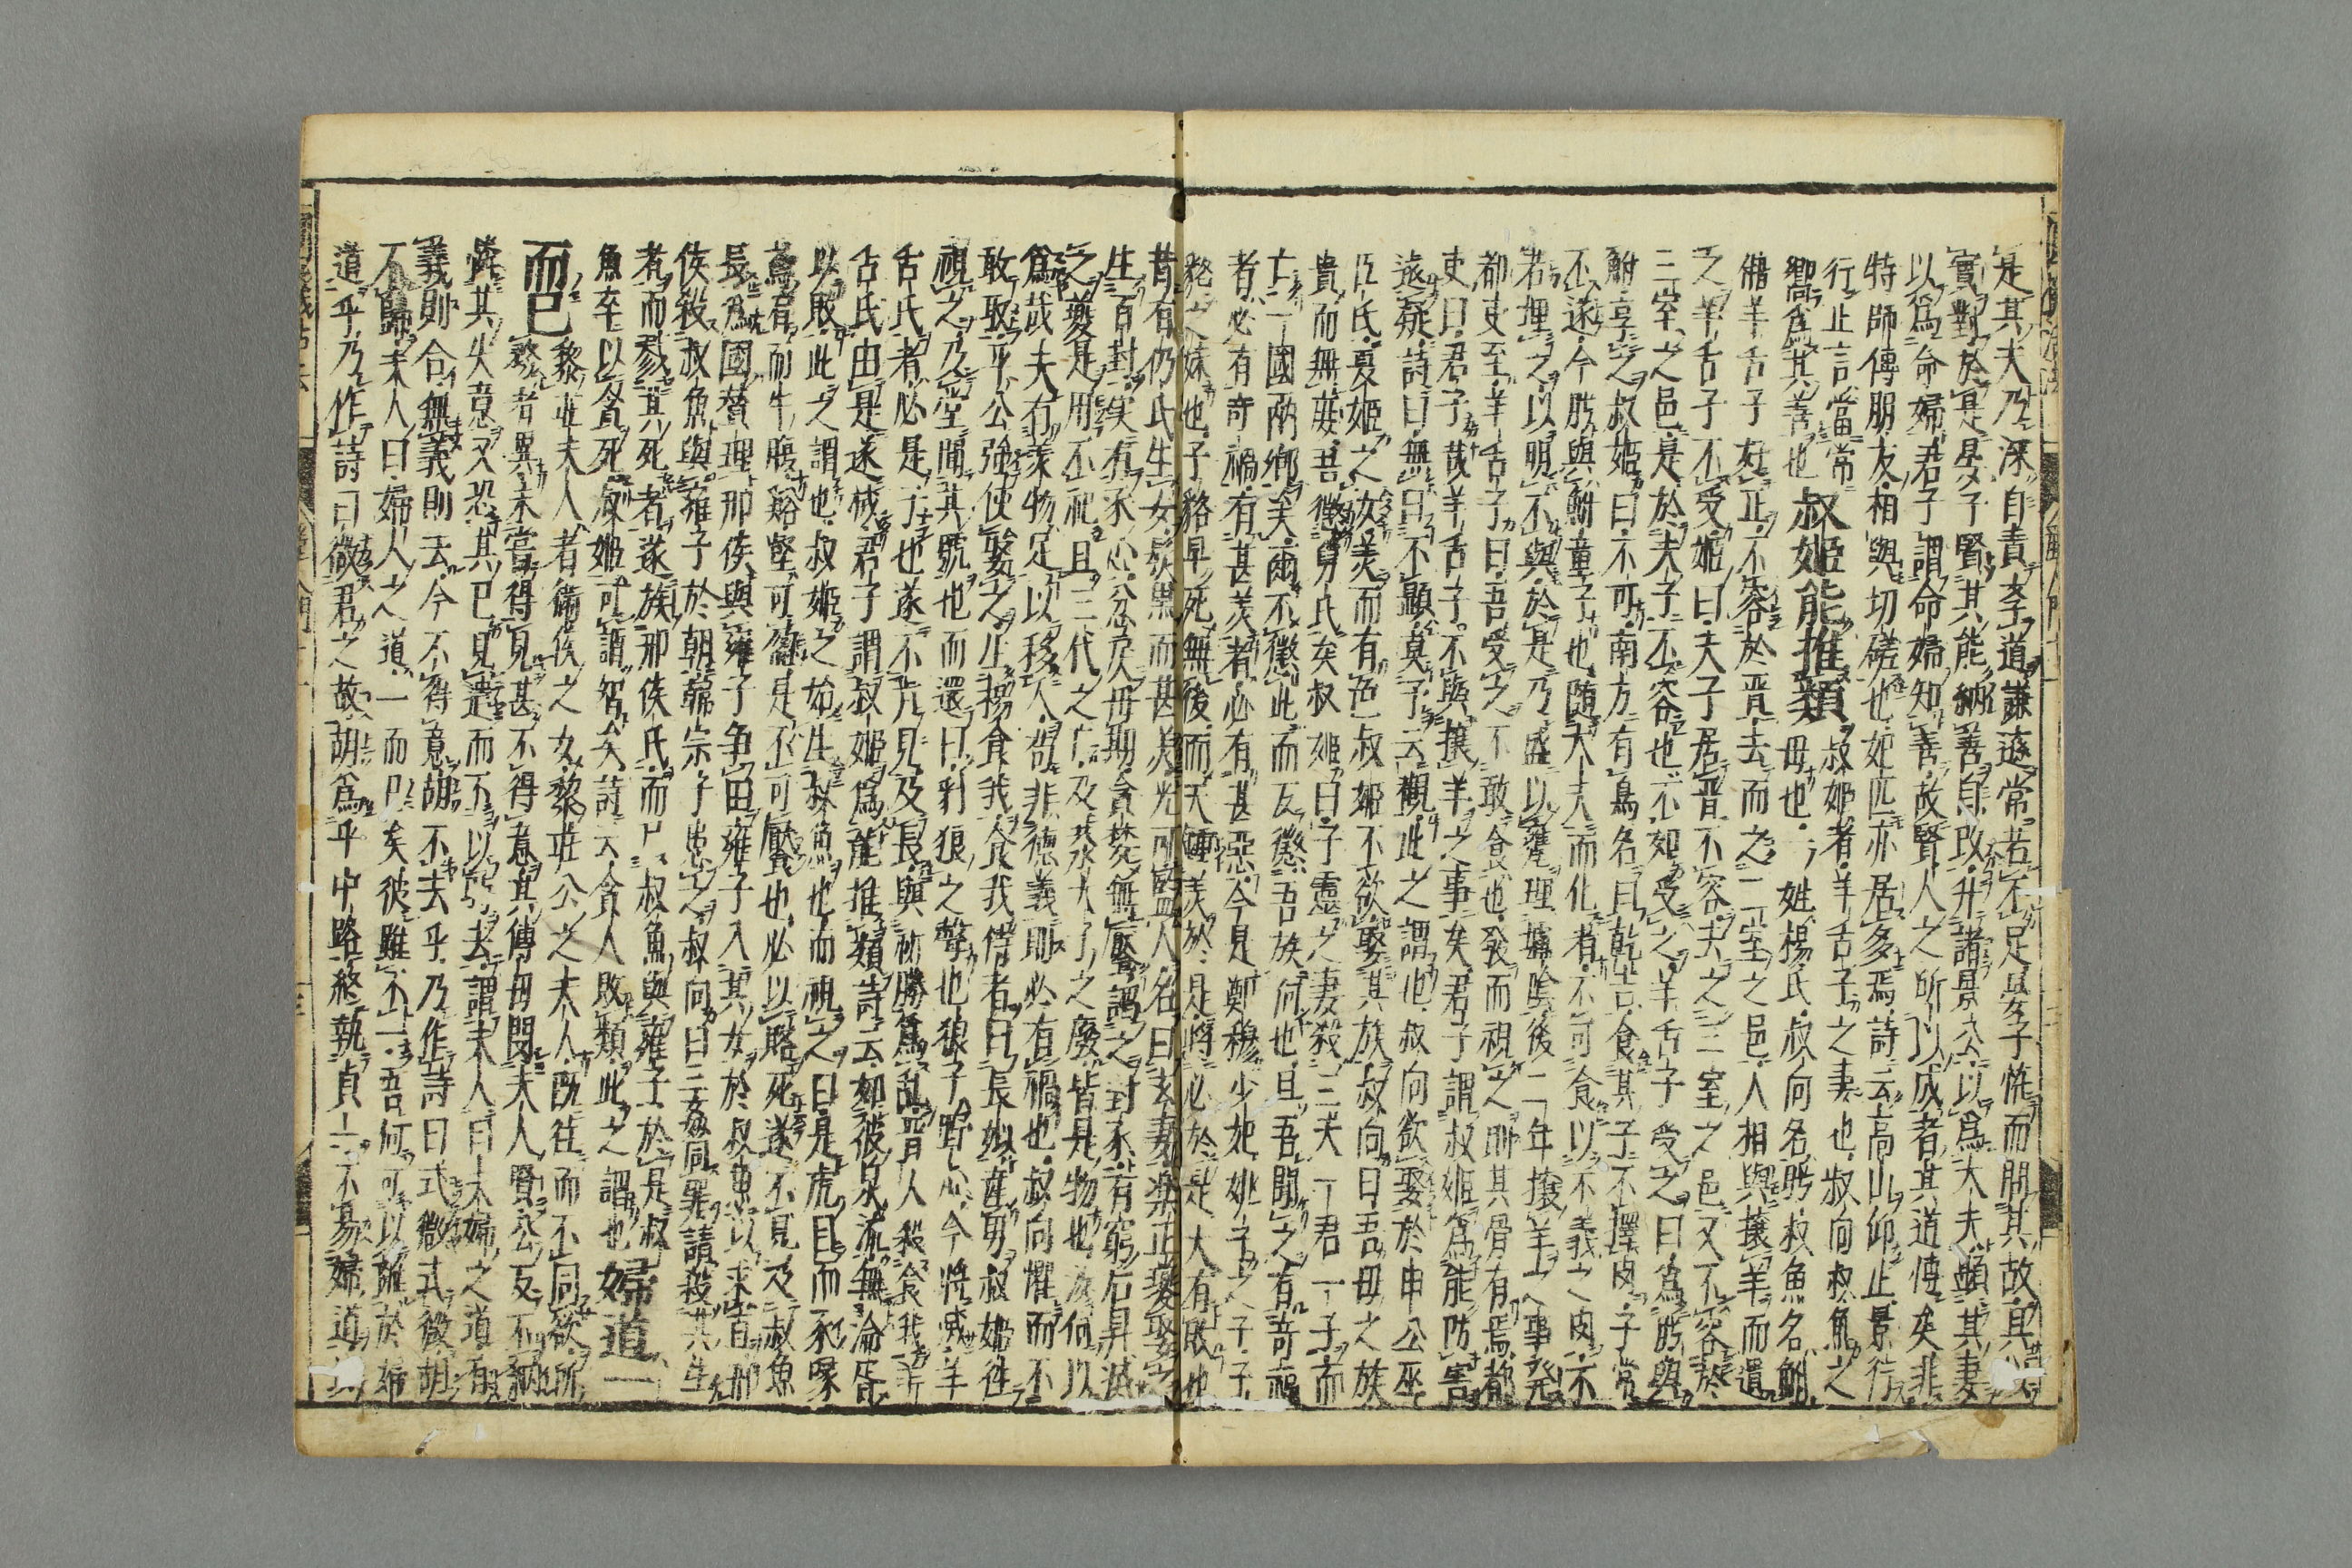 是其夫乃深自責孝道謙遜常若不足晏子恠而問其故具以
實對於是晏子賢其能納善自改升諸景公以爲大夫顕其妻
以爲命婦君子謂命婦知善故賢人之所以成者其道慱矣非
特師傅朋友相與切磋也妃匹亦居多焉詩云高山仰止景行
行止言當常
嚮爲其善也叔姬能推類叔姬者羊舌子之妻也叔向叔魚之
母也一姓楊氏叔向名肹叔魚名鮒
羊舌子好正不容於晋去而之三室之邑人相與攘羊而遺
之羊舌子不受姬曰夫子居晋不容去之三室之邑又不容於
三室之邑是於夫子不容也不如受之羊舌子受之曰爲肹與
鮒享之叔姬曰不可南方有鳥名曰乾吉食其子不擇肉子常
不遂今肹與鮒童子也随大夫而化者不可食以不義之肉不
若埋之以明不與於是乃盛以甕埋壚陰後二年攘羊之事発
都吏至羊舌子曰吾受之不敢食也発而視之則其骨有焉都
吏曰君子哉羊舌子不與攘羊之事矣君子謂叔姬爲能防害
遠疑詩曰無曰不顯莫予云觀此之謂也叔向欲娶於申公巫
臣氏夏姬之女美而有色叔姬不欲娶其族叔向曰吾母之族
貴而無庶吾懲舅氏矣叔姬曰子靈之妻殺三夫一君一子而
亡一國兩卿矣爾不懲此而反懲吾族何也且吾聞之有奇福
者必有奇禍有甚美者必有甚惡今是鄭穆少妃姚子之子子
貉之妹也子貉早死無後而天鍾美於是將必於是大有敗也
昔有仍氏生女髮黒而甚美光可監人名曰玄妻楽正夔娶之
生百封矣有豕心忿戻毋期貪婪無饜謂之封豕有窮后昇滅
之夔是用不祀且三代之亡及恭太子之廢皆是物也汝何以
爲哉夫有美物足以移人苟非徳義則必有禍也叔向懼而不
敢取平公強使娶之生楊食我食我侍者曰長姒産男叔姬往
視之乃堂聞其號也而還曰豺狼之聲也狼子野心今將滅羊
舌氏者必是子也遂不肯見及長與祁勝爲乱晋人殺食我羊
舌氏由是遂滅君子謂叔姬爲能推類詩云如彼泉流無淪胥
以敗此之謂也叔姬之始生叔魚也而視之曰是虎目而豕喙
鳶肩而牛腹谿壑可盈是不可饜也必以賂死遂不見及叔魚
長爲國賛理邢侯與雍子争田雍子入其女於叔魚以求直邢
侯殺叔魚與雍子於朝韓宗子患之叔向曰三姦同罪請殺其生
者而戮其死者遂族邢侯氏而尸叔魚與雍子於是叔
魚卒以貪死叔姬可謂智矣詩云貪人敗類此之謂也婦道一
而已黎莊夫人者衛侯之女黎莊公之夫人既往而不同欲所
務者異未嘗得見甚不得意其傅母閔夫人賢公反不納
憐其失意又恐其已見遣而不以時去謂夫人曰夫婦之道有
義則合無義則去今不得意胡不去乎乃作詩曰式微式微胡
不歸夫人曰婦人之道一而已矣彼雖不一吾何可以離於婦
道乎乃作詩曰微君之故胡爲乎中路終執貞一不易婦道